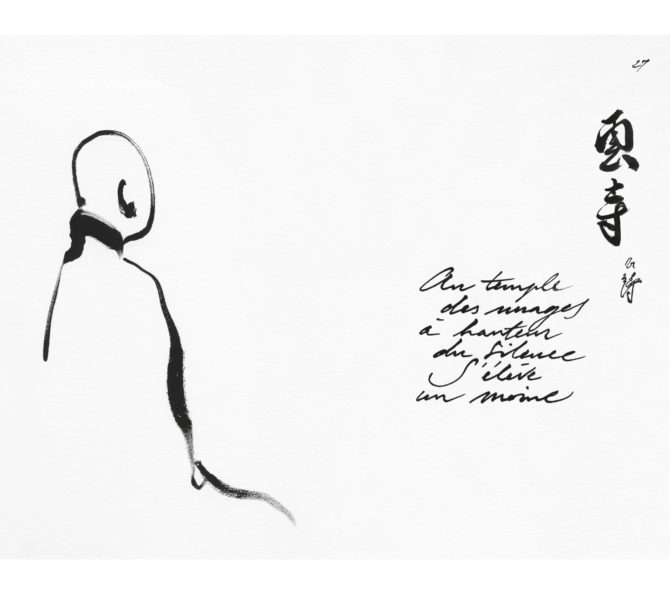 27
雲寺
Au temple
des nuages
à hauteur
du silence
S'élève
un moine